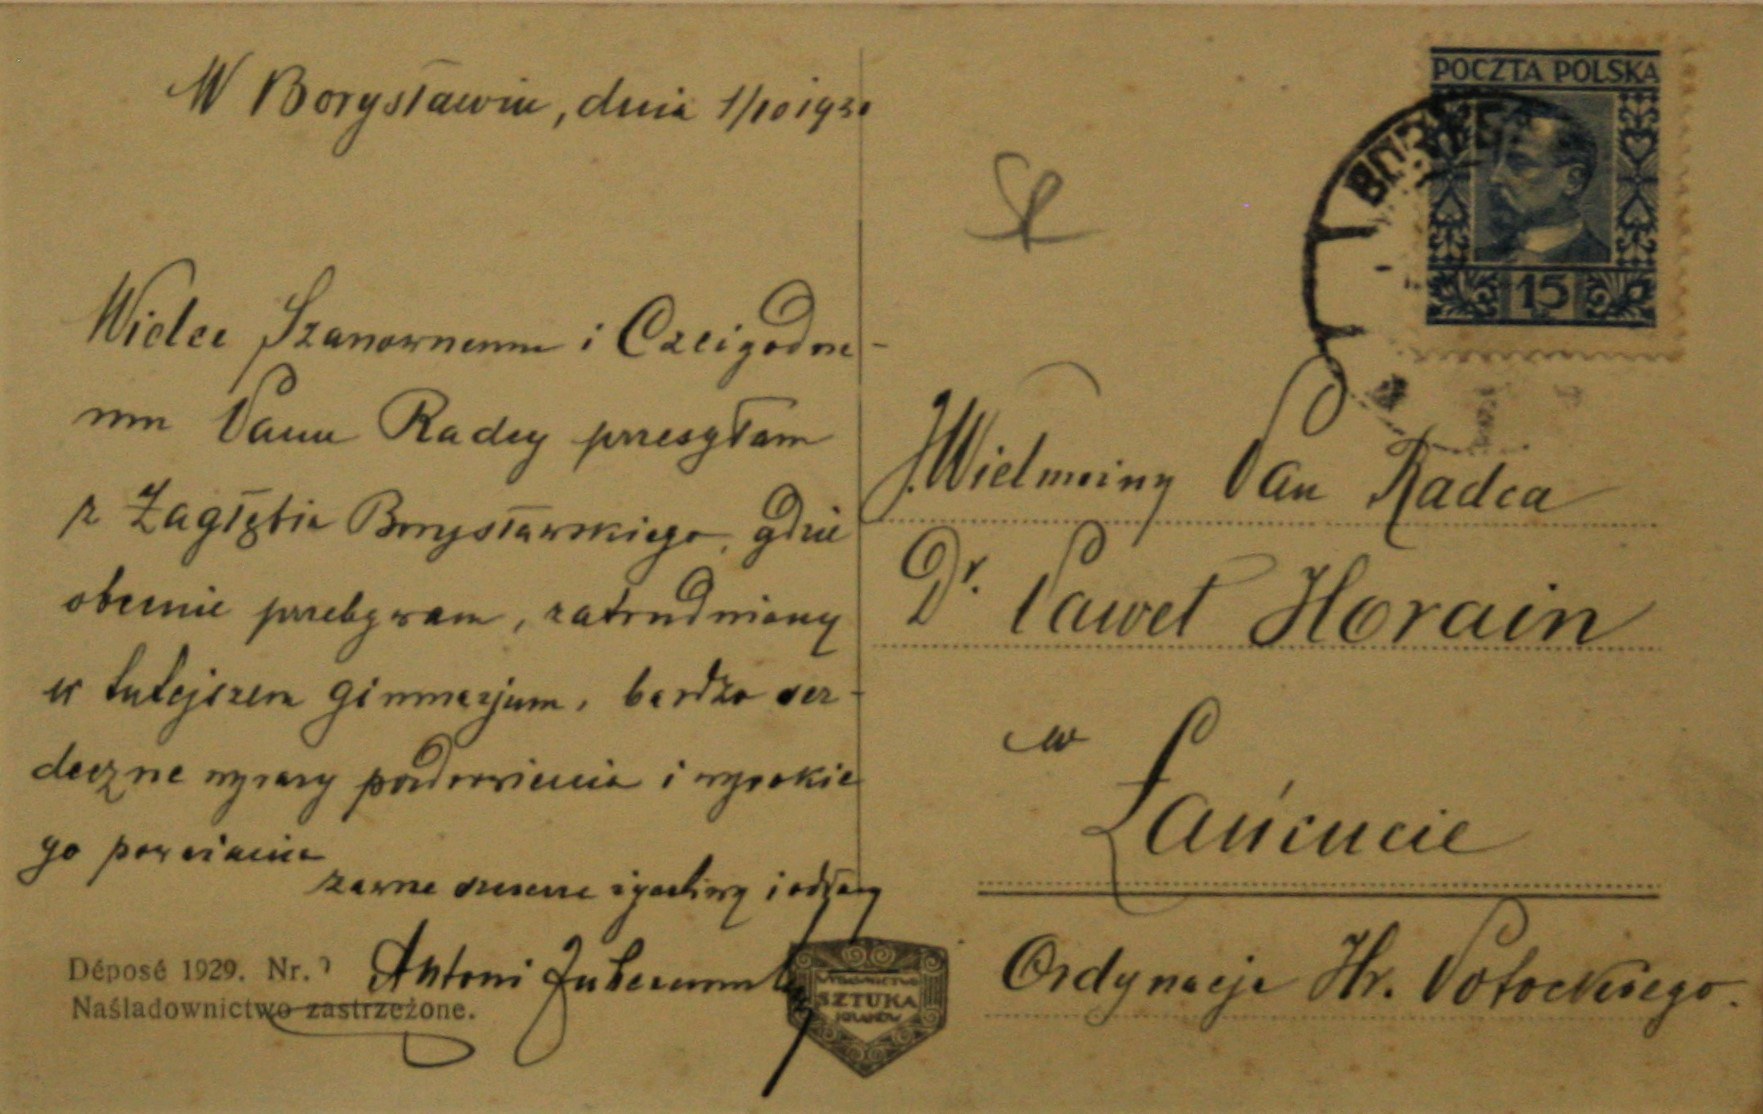 W Borysławiu, dnia 1/10 1930
Wielce Szanownemu i Czcigodne-
mu Panu Radcy przesyłam
z Zagłębia Borysławskiego, gdzie
obecnie przebywam, zatrudniony
w tutejszem gimnazjum, bardzo ser-
deczne wyrazy pozdrowienia i wysokie
go poważania
zawsze szczerze życzliwy i oddany
Antoni
Déposé 1929. Nr.
Naśladownictwo zastrzeżone.
WYDAWNICTWO
SZTUKA
KRAKÓW
POCZTA POLSKA
15
J.Wielmożny Pan Radca
Dr. Paweł Horain
w
Łańcucie
Ordynacja Hr. Potockiego.